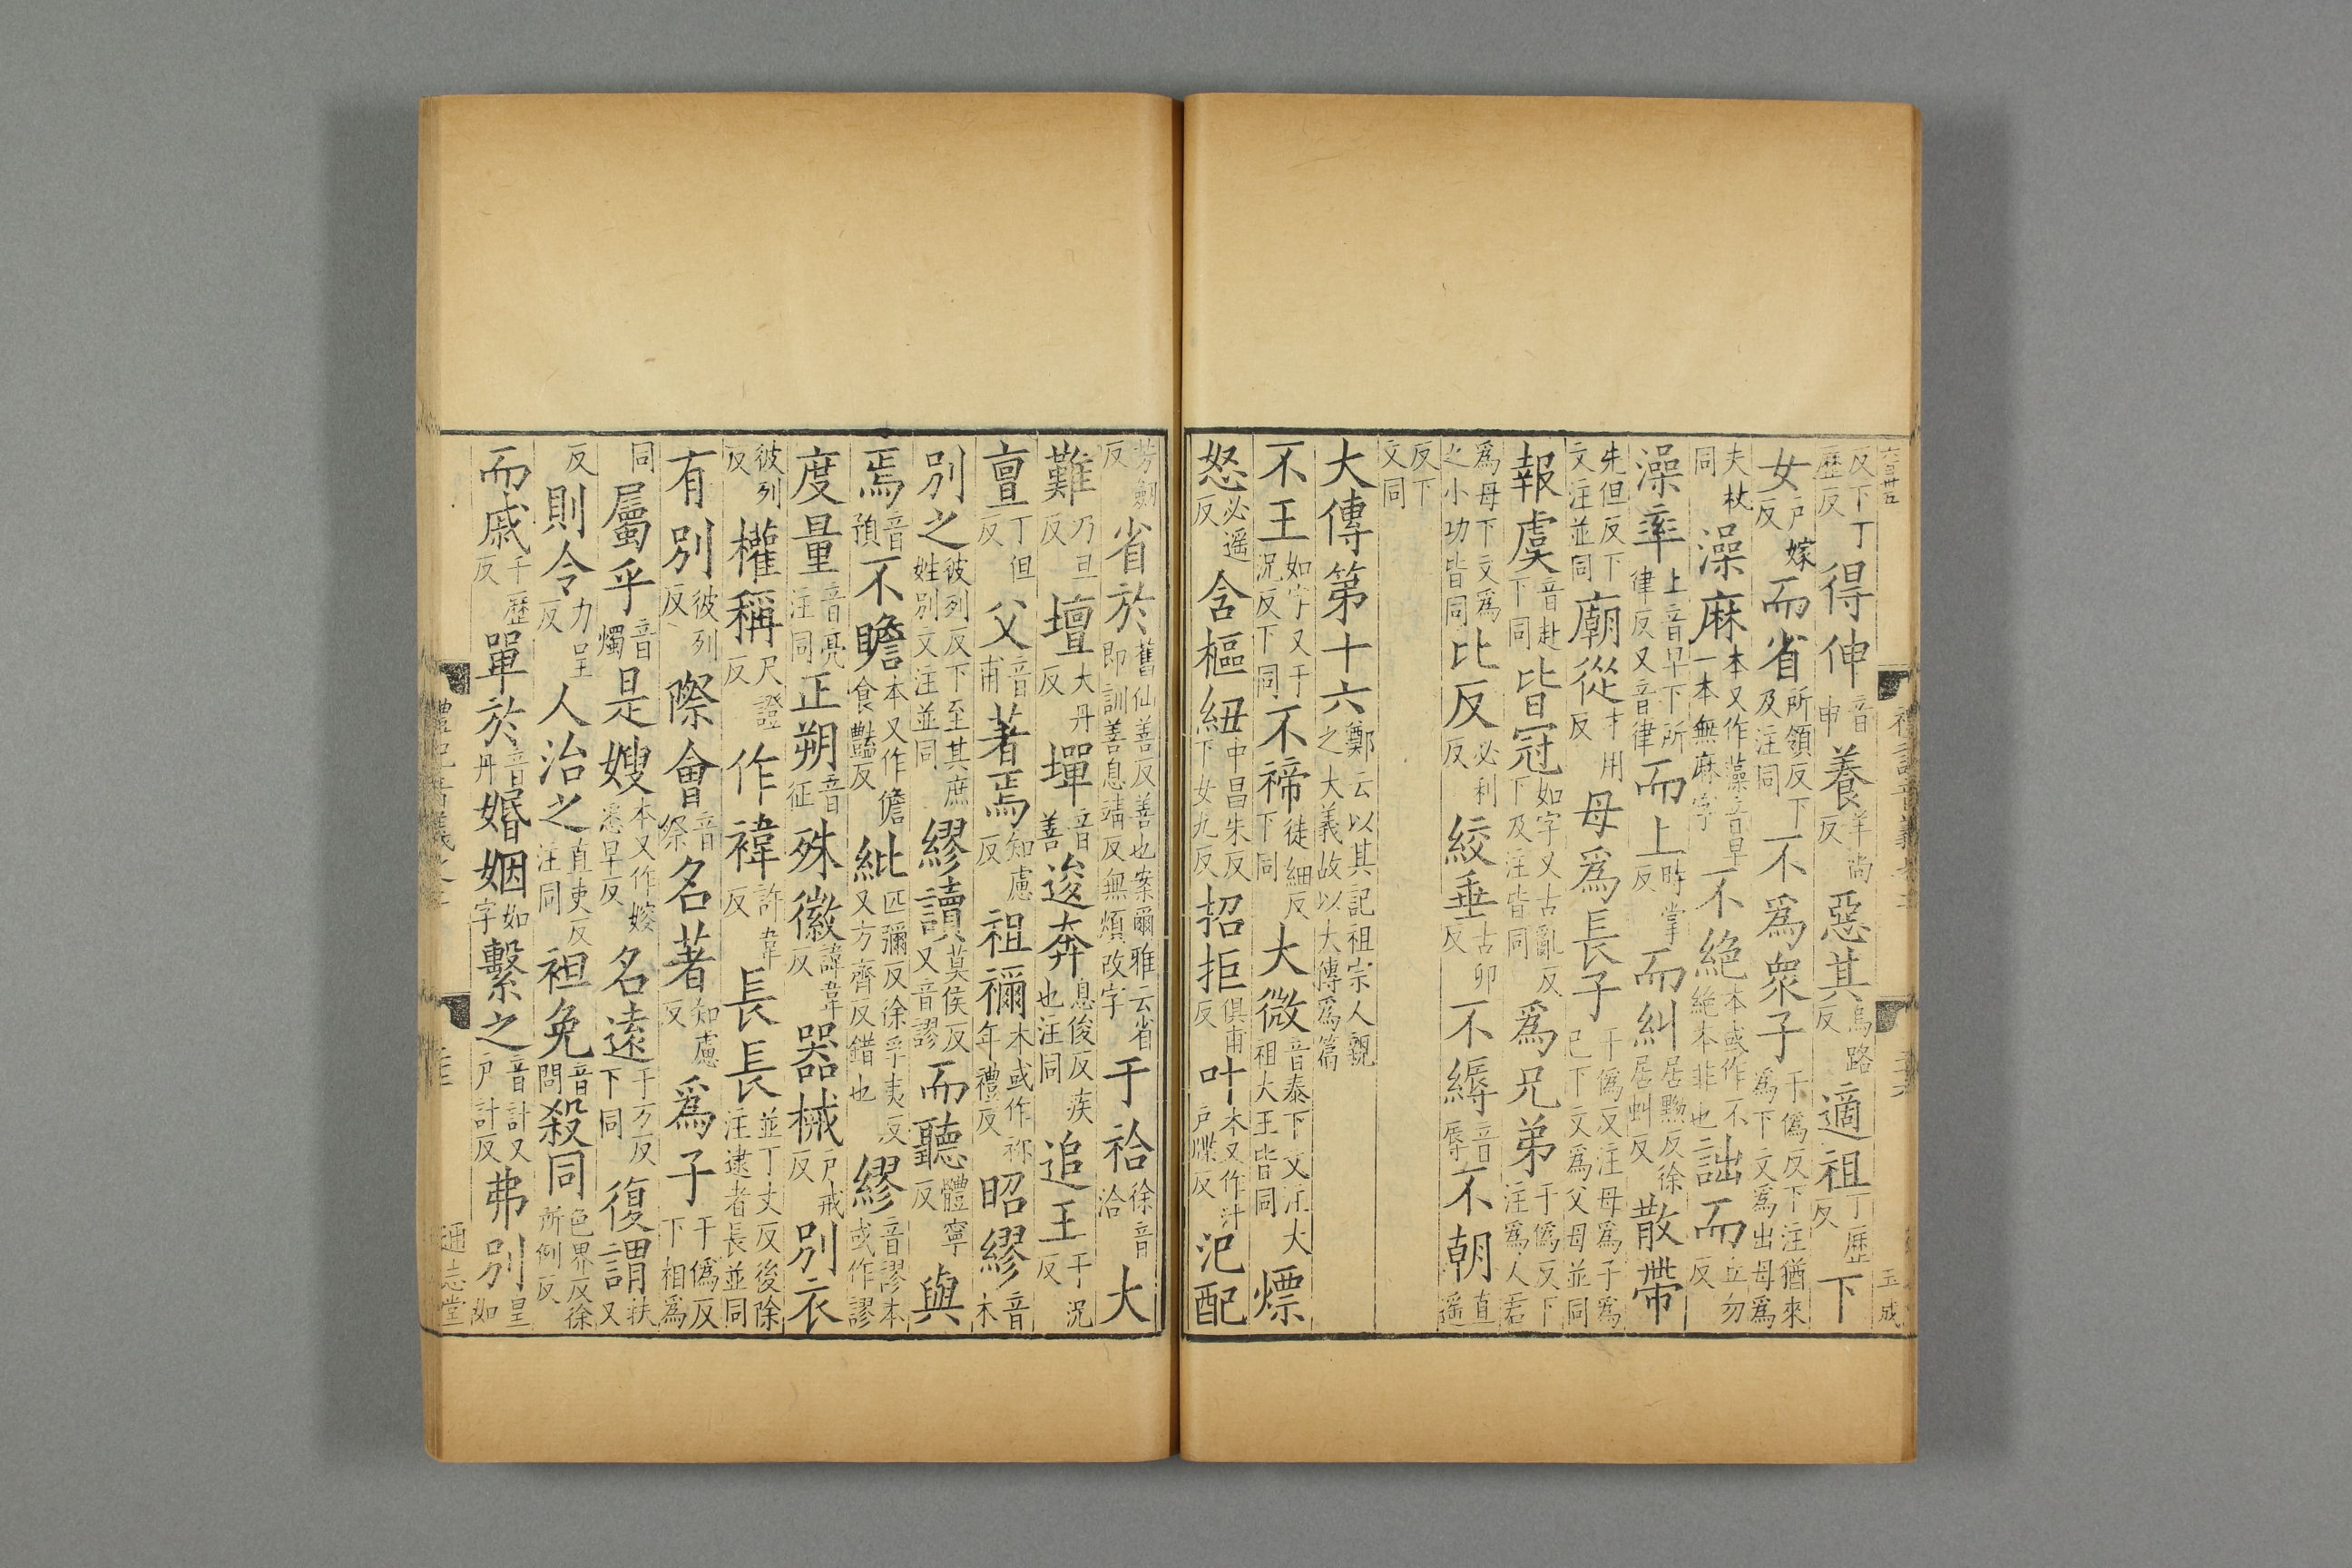 反下丁歷反得伸音申養羊尚反惡其烏路反適祖丁歷反下
女戶嫁反而省所領反下及注同不爲衆子于僞反下注猶來爲下文爲出母爲
夫杖同澡麻本又作藻音早一本無麻字不絶本或作不絶本非也詘而丘勿反
澡率上音早下所律反又音律而上時掌反而糾居黝反徐居虯反散帶
先但反下文注並同廟從才用反母爲長子于僞反注母爲子爲已下文爲父母並同
報虞音赴下同皆冠如字又古亂反下及注皆同爲兄弟于僞反下注爲人君
爲母下文爲之小功皆同比反必利反絞垂古卯反不縟音辱不朝直遥
反下文同
大傳第十六鄭云以其記祖宗人親之大義故以大傳爲篇
不王如字又于況反下同不禘徒細反下同大微音泰下文注大祖大王皆同熛
怒必遥反含樞紐中昌朱反下女九反招拒俱甫反叶本又作汁戶牒反汜配
芳劒反省於舊仙善反善也案爾雅云省即訓善息靖反無煩改字干祫徐音洽大
難乃旦反壇大丹反墠音善逡奔息俊反疾也注同追王于況反
亶丁但反父音甫著焉知慮反祖禰本或作祢年禮反昭繆音木
別之彼列反下至其庶姓別文注並同繆讀莫侯反又音謬而聽體寧反與
焉音預不贍本又作儋食豔反紕匹彌反徐孚夷反又方齊反錯也繆音謬本或作謬
度量音亮注同正朔音征殊徽諱韋反器械戶戒反別衣
彼列反權稱尺證反作褘許韋反長長並丁丈反後除注逮者長並同
有別彼列反際會音祭名著知慮反爲子于僞反下相爲
同屬乎音燭是嫂本又作㛮悉早反名遠于万反下同復謂扶又
反則令力呈反人治之直吏反注同袒免音問殺同色界反徐所例反
而戚千歷反單於音丹婚姻如字繫之音計又戶計反弗別皇如
通志堂